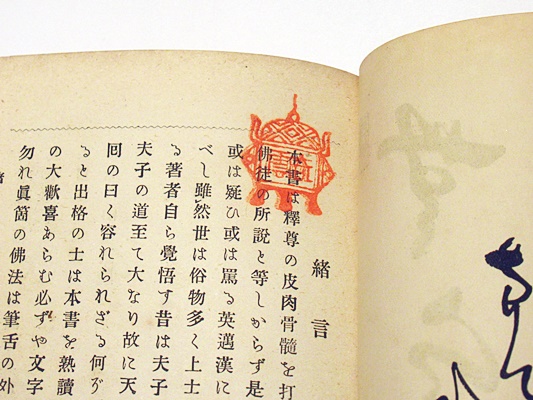 緒言
本書は釋尊の皮肉骨髓を打
佛徒の所説と等しからず是
或は疑ひ或は罵る英邁漢に
べし雖然世は俗物多く上士
る著者自ら覺悟す昔は夫子
夫子の道至て大なり故に天
回の曰く容れられざる何ぞ
ると出格の士は本書を熟讀
の大歡喜あらむ必ずや文字
勿れ眞箇の佛法は筆舌の外